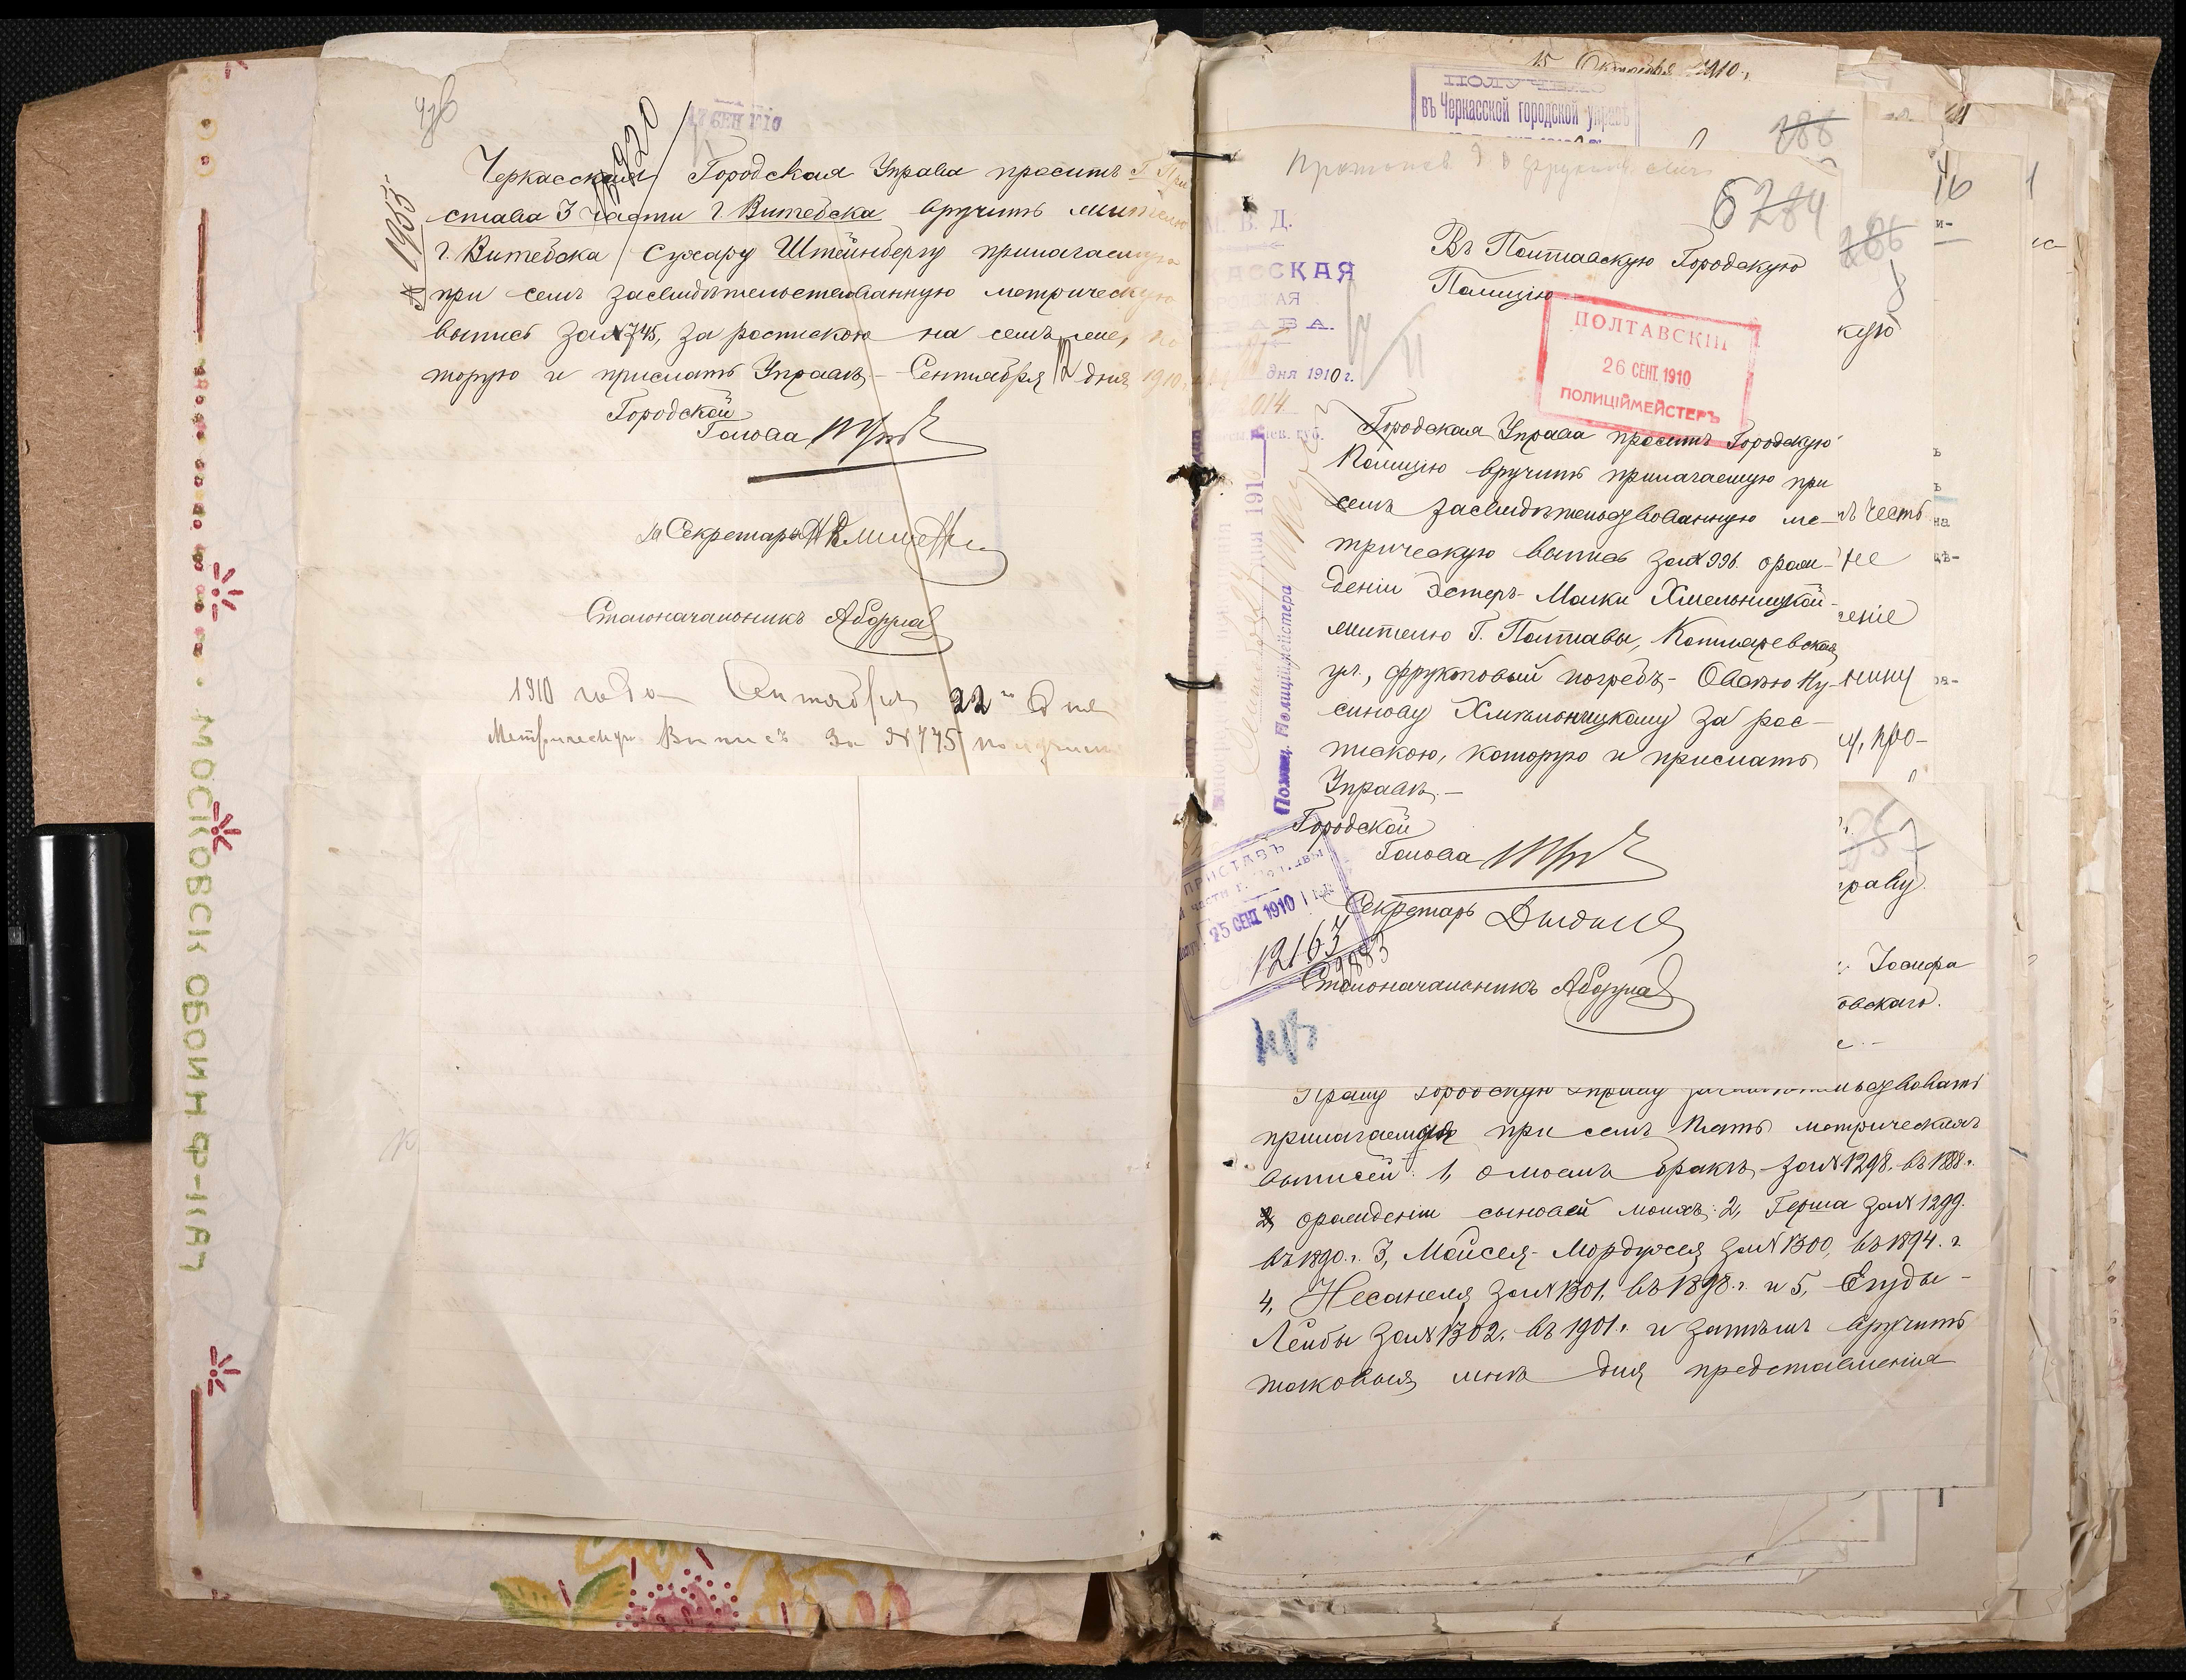 17 СЕН 1910
Черкасская Городская Управа проситъ Г. При
става 3 части г. Витебска вручить жителю
г. Витебска Сухару Штейнбергу прилагаемую
при семъ засвидѣтельствованную метрическую
выпись за №745, за роспискою на семъ же, ко
торую и прислать Управѣ.- Сентября 12 дня 1910 г.
№ 1955
Городской
Голова
Секретаря
Столоначальникъ
1910 года Сентября 22го дня
Метрическую Выпись за №745 получилъ
МОСКОВСК ОБОЙН Ф-КА
15 Октября 1910 г.
ПОЛУЧЕНО
въ Черкасской городской управѣ
288
6284
286
М. В. Д.
дня 1910 г.
2014
Въ Полтавскую Городскую
Полицію
ПОЛТАВСКІЙ
26 СЕНТ. 1910
ПОЛИЦІЙМЕЙСТЕРЪ
Городская Управа проситъ Городскую
Полицію вручить прилагаемую при
семъ засвидѣтельствованную ме-
трическую выпись за №996. о рож-
деніи Эстеръ-Малки Хмельницкой-
жителю Г. Полтавы, Котляревская
ул., фруктовый погребъ,- Овсѣю Ну-
синову Хмѣльницкому за рос-
пискою, которую и прислать
Управѣ.-
Городской
Голова
Секретарь
Столоначальникъ
Полиціймейстера
ПРИСТАВЪ
25 СЕНТ. 1910
12163
кую
ъ честь
не
еніе
нину
у, про-
раву.
Іосифа
овскаго.
Прошу Городскую Управу засвидѣтельствовать
прилагаемыя при семъ пять метрическихъ
выписей: 1, о моемъ бракѣ за №1298. въ 1888 г.
о рожденіи сыновей моихъ: 2, Герша за №1299.
въ 1890 г. 3, Мойсея-Мордухея за №1300, въ 1894. г.
4, Несанеля за №1301. въ 1898 г. и 5, Егуды-
Лейбы за №1302. въ 1901 г. и затѣмъ вручить
таковыя мнѣ для представленія